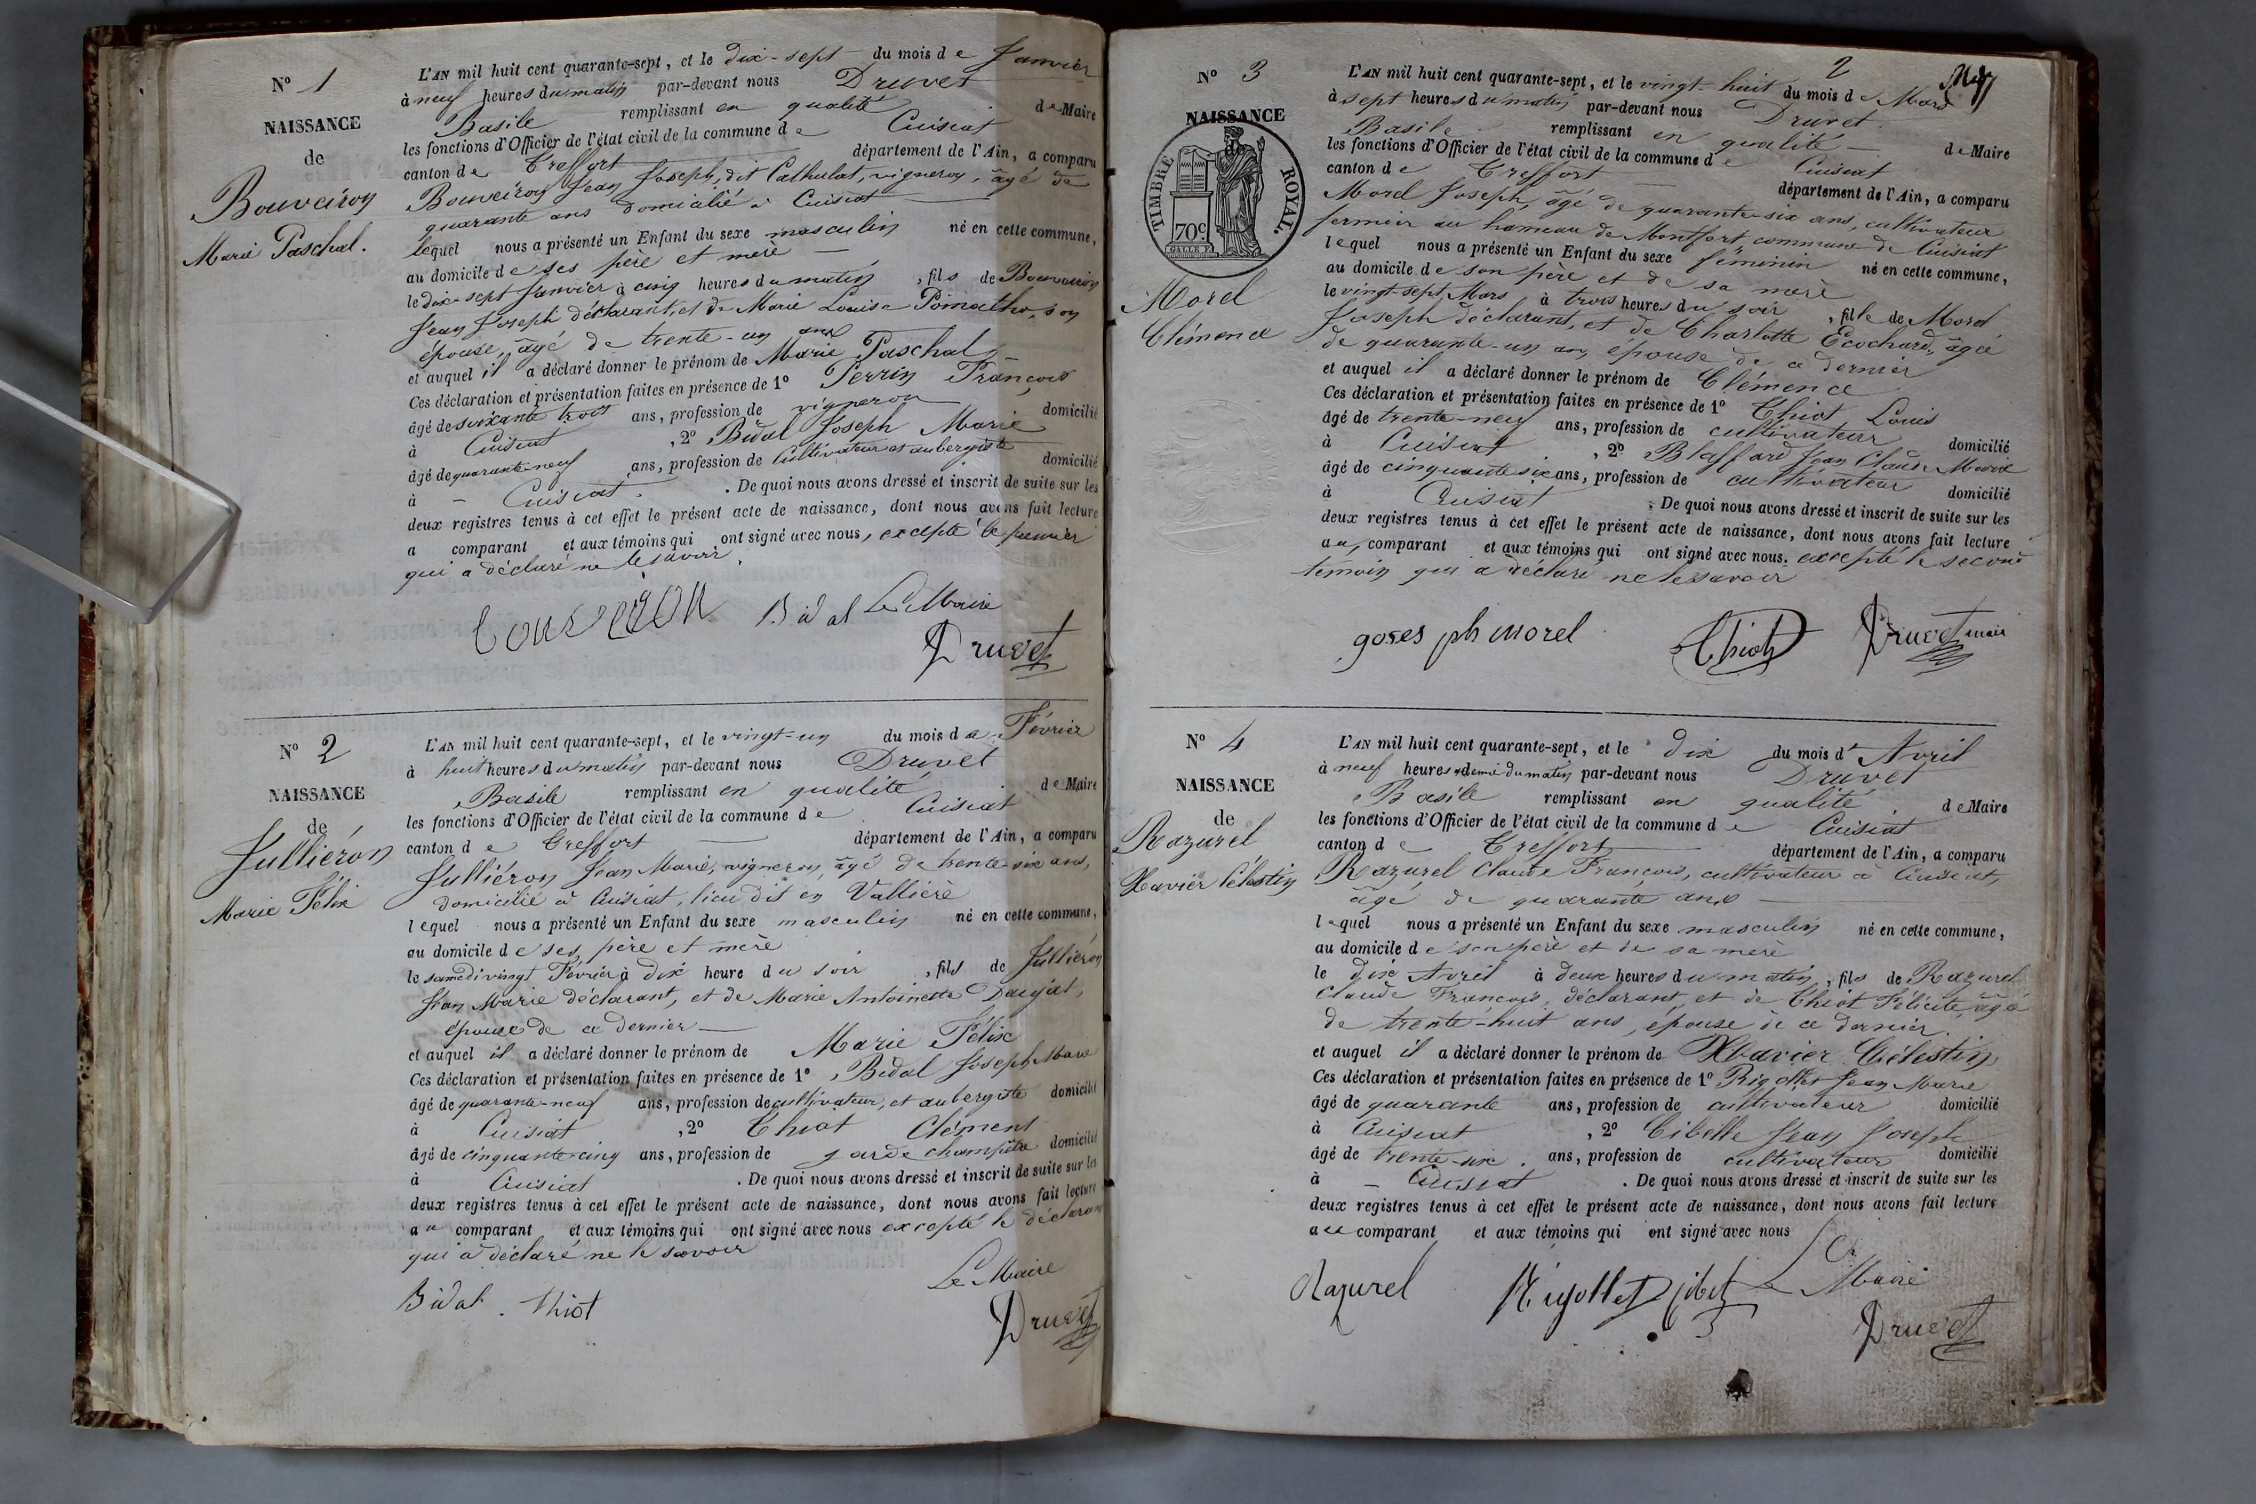 N° 1
NAISSANCE
de
Bouveiron
Marie Paschal.
L'AN mil huit cent quarante-sept, et le dix-sept du mois de Janvier
à neuf heures du matin par-devant nous Druvet
Basile remplissant en qualité de Maire
les fonctions d'Officier de l'état civil de la commune de Cuisiat
canton de Treffort département de l'Ain, a comparu
Bouveiron Jean Joseph, dit Cathulat, vigneron, âgé de
quarante ans domicilié à Cuisiat
lequel nous a présenté un Enfant du sexe masculin né en cette commune,
au domicile de ses père et mère
le dix-sept Janvier à cinq heures du matin, fils de Bouveiron
Jean Joseph déclarant, et de Marie Louise Pomathio, son
épouse, âgé de trente-un ans
et auquel il a déclaré donner le prénom de Marie Paschal
Ces déclaration et présentation faites en présence de 1° Perrin François
âgé de soixante trois ans, profession de vigneron domicilié
à Cuisiat, 2° Bidal Joseph Marie
âgé de quarante-neuf ans, profession de cultivateur et aubergiste domicilié
à Cuisiat. De quoi nous avons dressé et inscrit de suite sur les
deux registres tenus à cet effet le présent acte de naissance, dont nous avons fait lecture
a comparant et aux témoins qui ont signé avec nous, excepté le premier
qui a déclaré ne le savoir.
bouveiron Bidal Le Maire
Druvet
N° 2
NAISSANCE
de
Jullieron
Marie Félix
L'AN mil huit cent quarante-sept, et le vingt-un du mois de Février
à huit heures du matin par-devant nous Druvet
Basile remplissant en qualité de Maire
les fonctions d'Officier de l'état civil de la commune de Cuisiat
canton de Treffort département de l'Ain, a comparu
Julliéron Jean Marie, vigneron, âgé de trente-six ans,
domicilié à Cuisiat, lieu dit en Vallière
lequel nous a présenté un Enfant du sexe masculin né en cette commune,
au domicile de ses père et mère
le samedi vingt Février à dix heure du soir, fils de Julliéron
Jean Marie déclarant, et de Marie Antoinette Daujat,
épouse de ce dernier
et auquel il a déclaré donner le prénom de Marie Félix
Ces déclaration et présentation faites en présence de 1° Bidal Joseph Marie
âgé de quarante-neuf ans, profession de cultivateur, et aubergiste domicilié
à Cuisiat, 2° Thiot Clément
âgé de cinquante-cinq ans, profession de garde champêtre domicilié
à Cuisiat. De quoi nous avons dressé et inscrit de suite sur les
deux registres tenus à cet effet le présent acte de naissance, dont nous avons fait lecture
au comparant et aux témoins qui ont signé avec nous excepté le déclarant
qui a déclaré ne le savoir
Le Maire
Bidal. Thiot
Druvet
2
N° 3
NAISSANCE
TIMBRE ROYAL.
70c
Morel
Clémence
L'AN mil huit cent quarante-sept, et le vingt-huit du mois de Mars
à sept heures du matin par-devant nous Druvet
Basile remplissant en qualité de Maire
les fonctions d'Officier de l'état civil de la commune de Cuisiat
canton de Treffort département de l'Ain, a comparu
Morel Joseph, âgé de quarante-six ans, cultivateur
fermier au hameau de Montfort, commune de Cuisiat
lequel nous a présenté un Enfant du sexe féminin né en cette commune,
au domicile de son père et de sa mère
le vingt-sept Mars à trois heures du soir, fille de Morel
Joseph déclarant, et de Charlotte Ecochard, âgée
de quarante-un ans, épouse de ce dernier
et auquel il a déclaré donner le prénom de Clémence
Ces déclaration et présentation faites en présence de 1° Thiot Louis
âgé de trente-neuf ans, profession de cultivateur domicilié
à Cuisiat, 2° Blaffard Jean Claude Marie
âgé de cinquante six ans, profession de cultivateur domicilié
à Cuisiat. De quoi nous avons dressé et inscrit de suite sur les
deux registres tenus à cet effet le présent acte de naissance, dont nous avons fait lecture
au comparant et aux témoins qui ont signé avec nous, excepté le second
témoin qui a déclaré ne le savoir
goses ph morel Thiot Druvet maire
N° 4
NAISSANCE
de
Razurel
Xavier Célestin
L'AN mil huit cent quarante-sept, et le dix du mois d'Avril
à neuf heures & demie du matin par-devant nous Druvet
Basile remplissant en qualité de Maire
les fonctions d'Officier de l'état civil de la commune de Cuisiat
canton de Treffort département de l'Ain, a comparu
Razurel Claude François, cultivateur à Cuisiat,
âgé de quarante ans
lequel nous a présenté un Enfant du sexe masculin né en cette commune,
au domicile de son père et de sa mère
le dix Avril à deux heures du matin, fils de Razurel
Claude François, déclarant, et de Thiot Félicité, âgé
de trente-huit ans, épouse de ce dernier.
et auquel il a déclaré donner le prénom de Xavier Célestin
Ces déclaration et présentation faites en présence de 1° Rigollet Jean Marie
âgé de quarante ans, profession de cultivateur domicilié
à Cuisiat, 2° Cibelle Jean Joseph
âgé de trente-six. ans, profession de cultivateur domicilié
à Cuisiat. De quoi nous avons dressé et inscrit de suite sur les
deux registres tenus à cet effet le présent acte de naissance, dont nous avons fait lecture
au comparant et aux témoins qui ont signé avec nous
Le Maire
Razurel Rigollet
Druvet